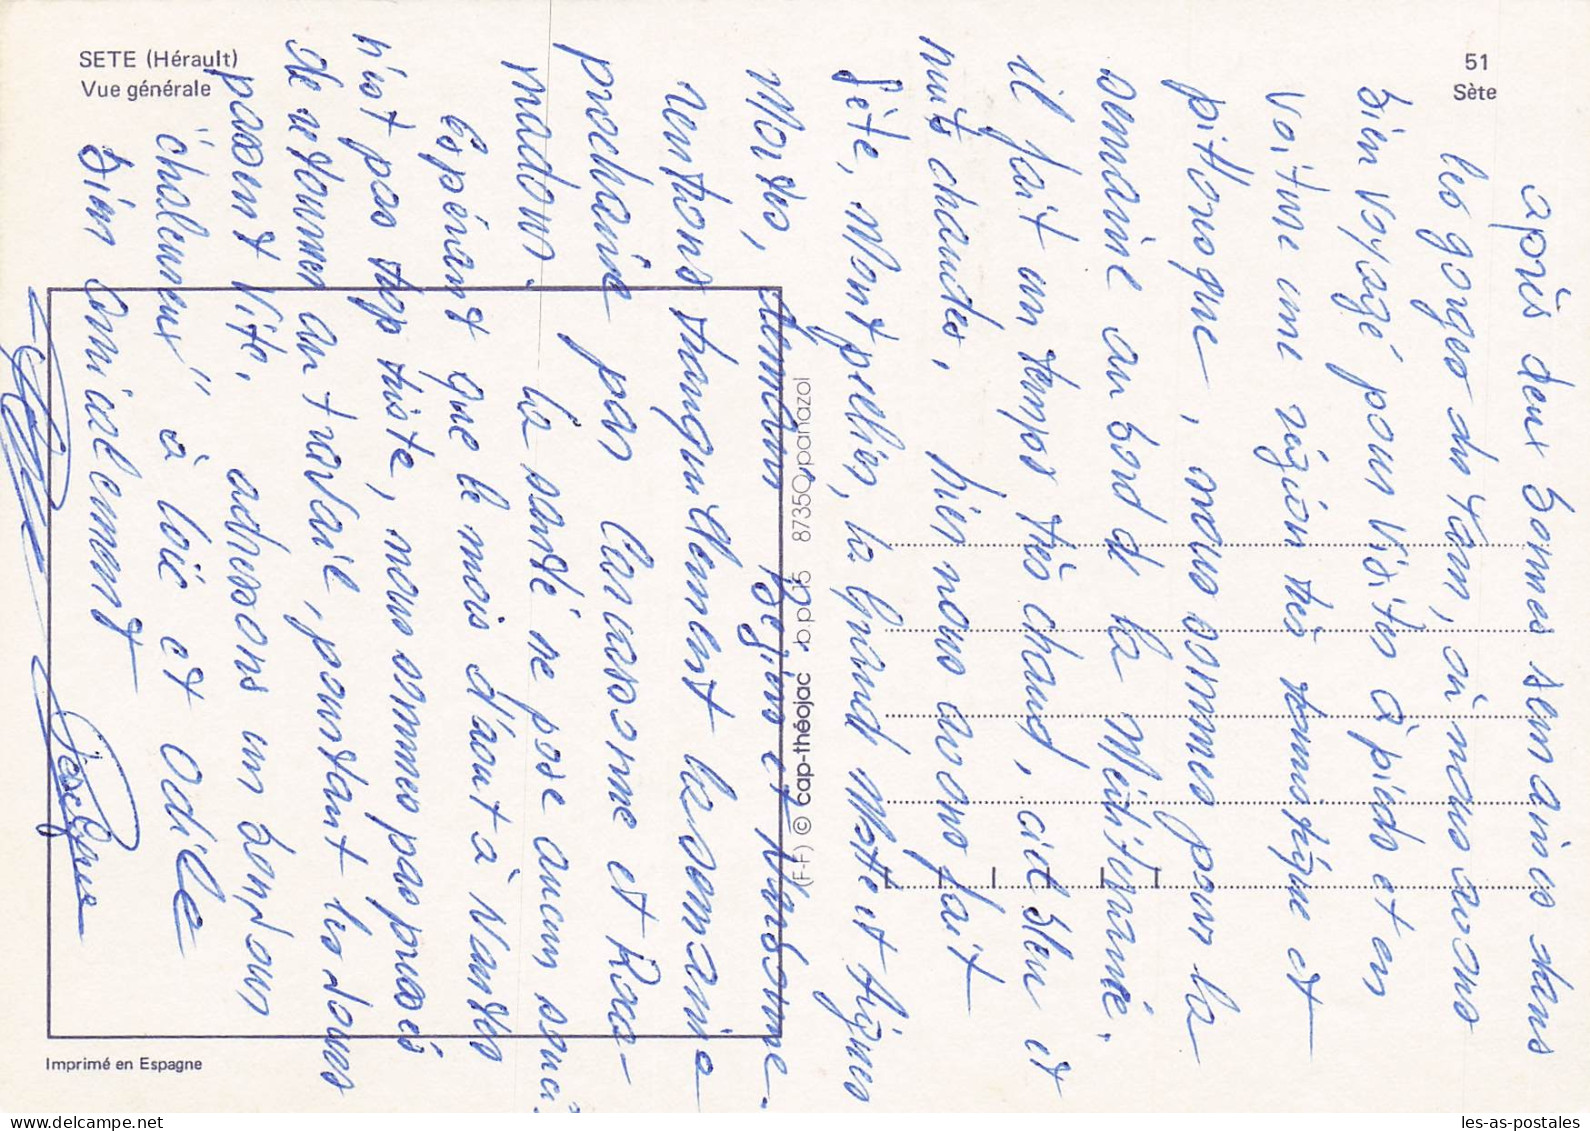 SETE (Hérault)
Vue générale
51
Sète
après deux bonnes semaines dans
les gorges du Tarn, où nous avons
bien voyagé pour visiter à pieds et en
voiture une région très touristique et
pittoresque, nous sommes pour la
semaine au bord de la Méditerranée.
il fait un temps très chaud, ciel bleu et
nuits chaudes, hier nous avons fait
Sète, Montpellier, la Grand Motte et Aigues
Mortes, demain Béziers et Narbonne.
rentrons tranquillement la semaine
prochaine par Carcassonne et Roca-
madour. La santé ne pose aucun souci.
Espérant que le mois d'aout à Nantes
n'est pas trop triste, nous sommes pas pressés
de retourner au travail, pourtant les jours
passent vite. adressons un bonjour
"chaleureux" à Loïc et Odile
bien amicalement
Jocelyne
(F-F) © cap-théojac b.p. n°5 87350 panazol
Imprimé en Espagne
les-as-postales